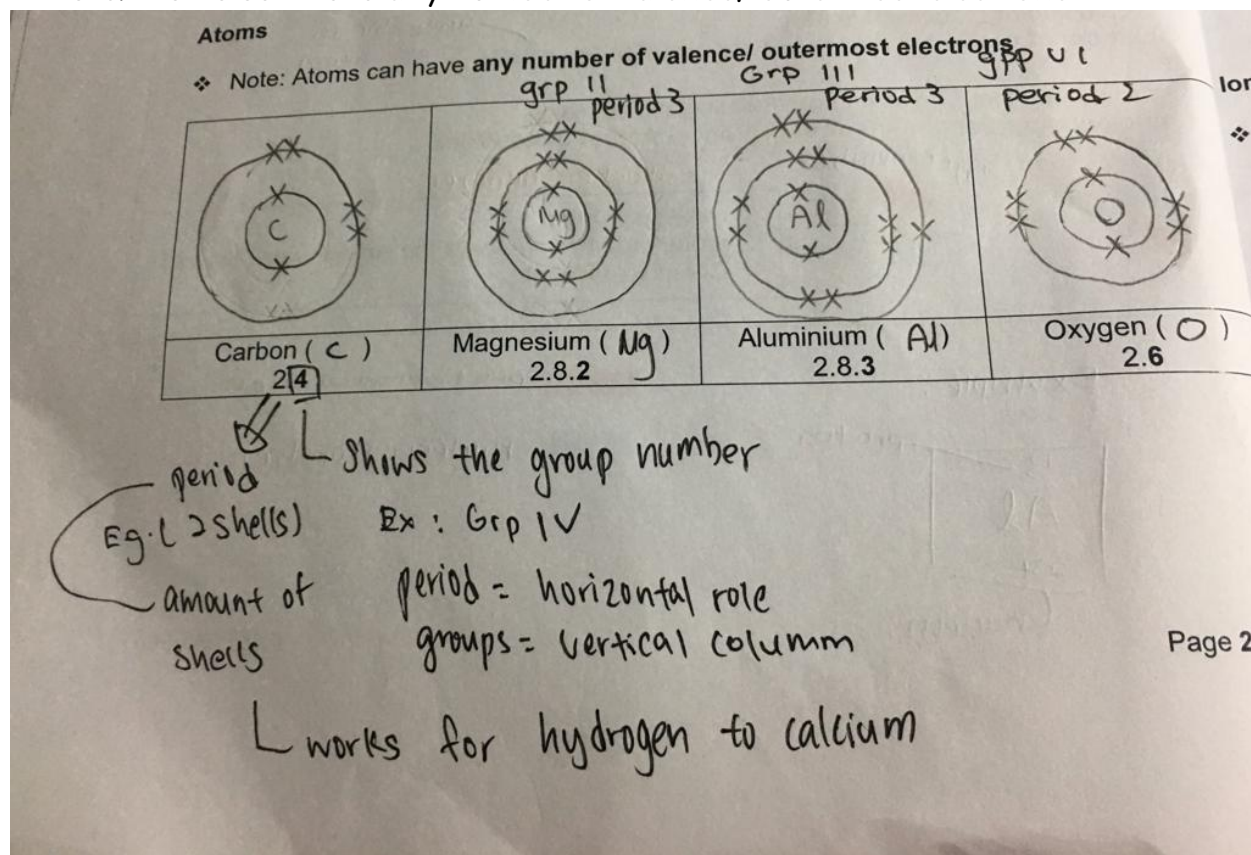 Atoms
❖ Note: Atoms can have any number of valence/ outermost electrons
grp II period 3
Grp III period 3
grp VI period 2
Ion
❖
C
Mg
Al
O
Carbon ( C )
2.4
Magnesium ( Mg )
2.8.2
Aluminium ( Al )
2.8.3
Oxygen ( O )
2.6
period
Eg. ( 2 shells)
amount of
shells
Shows the group number
Ex : Grp IV
period = horizontal role
groups = vertical columm
works for hydrogen to calcium
Page 2